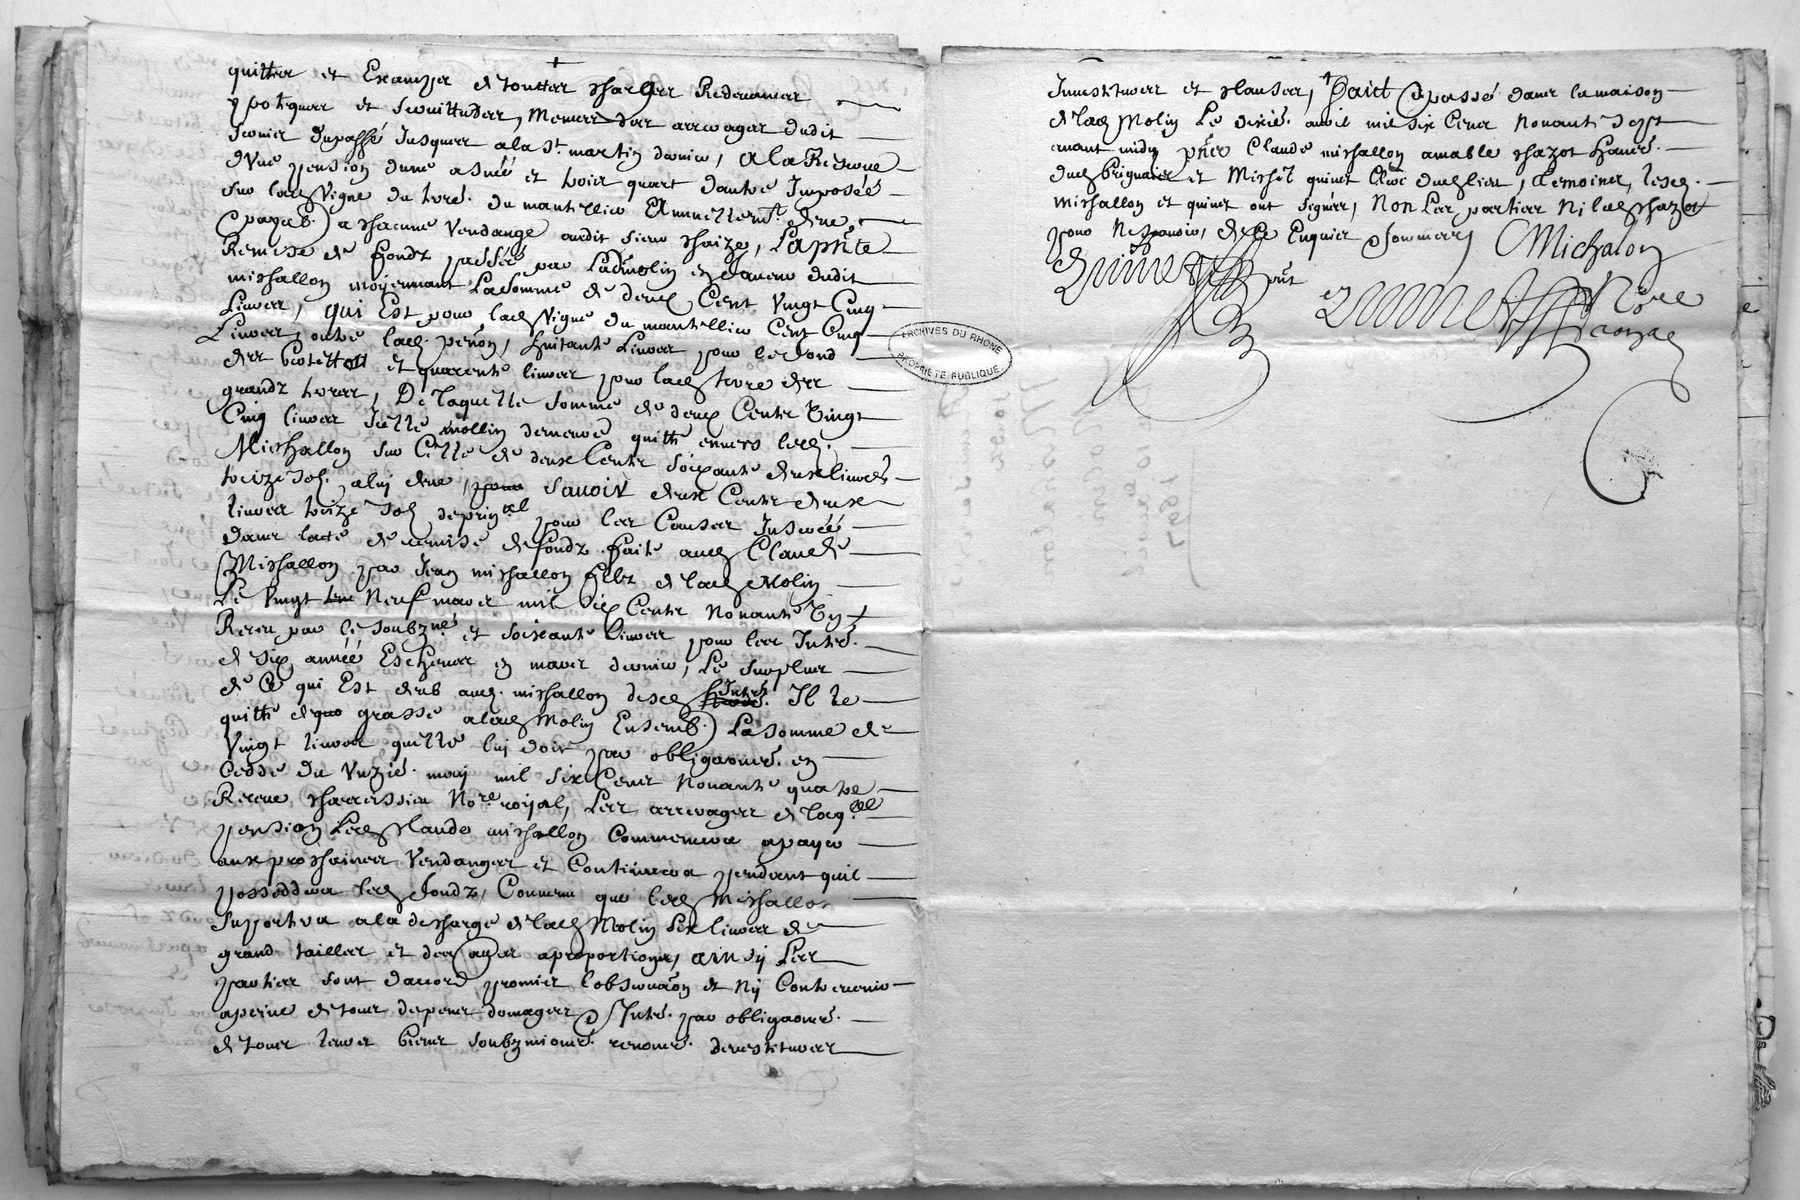 quitter et Exampzer de touttes charges Redevances
ypotiques et servittudes, Mêmes des arrerages dudit
servier du passé Jusques a la St. martin dernier, A la Reserve
dune pension dune asnée et trois quart dautre Imposée
sur lad. Vigne du du mantellier Annuellemt. deue
(payab.) a chacune Vendange audit sieur Chaize, La pñte
Remise de fondz passée par Lad. molin En faveur dudit
michallon moyennant La somme de deux Cent Vingt Cinq
Livres, qui Est pour lad. Vigne du mantellier Cent Cinq
Livres, outre lad. peñon, huitante Livres pour le fond
des et quarente livres pour lad. terre des
grandz terres, De laquelle somme de deux Cents Vingt
Cinq livres Icelle mollin demeure quitte envers led.
Michallon sur Celle de deux Cents soixante deux livres
treize sols a luy deue, savoir deux Cents deux
livres treize sols de prin.al pour les Causes Inserées
dans lacte de remise de fondz faite aud. Claude
Michallon par Jean michallon filz de lad. Molin
Le Vingt neuf mars mil six Cents Nonante Un
Receu par le soubz.né et soixante livres pour les Intrés.
de six année Escheues en mars dernier, Le surplus
de Ce qui Est deub aud. michallon desd. Intrés. Il le
quitte de grasse a lad. Molin Ensemb.) La somme de
Vingt livres quelle luy doit par obligaonés. en
cedde du Unzié. may mil six Cens Nonante quatre
Receue Chavassieu No.re roijal, Les arrerages de laq.lle
pension Led. Claude michallon Commencera a payer
aux prochaines Vendanges et Continuera pendant quil
possedera led. fondz, Convenu que led. Michallon
suportera a la descharge de lad. Molin six livres de
grand tailles et des a proportion, ainsy Les
parties sont daccord promis lobservaõn et Ny Contrevenir
a peine de tous depens domages Intrés. par obligaonés.
de tous leurs biens soubzmionés. renonés. devestitures
Investitures et clauses, Fait & passé dans la maison
de lad. Molin Le dixié. avril mil six Cens Nonante sept
avant midy pñts Claude michallon amable chazot
dud. Brignais et Michel quinet Clerc dud. lieu, temoins, lesd.
michallon et quinet ont signez, Non Les parties Ni led. Chazot
pour Ne savoir, de Ce Enquis & sommez CMichalon
Quinet pñt
Quinet No.re
Royal
ARCHIVES DU RHONE
PROPRIÉTÉ PUBLIQUE